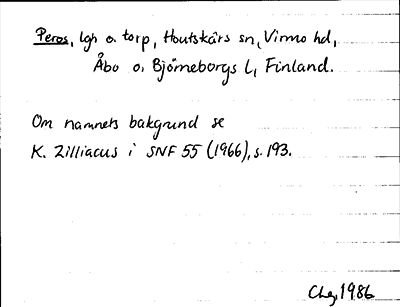 Peros, lgh o. torp, Houtskärs sn, Virmo hd,
Åbo o. Björneborgs l, Finland.
Om namnets bakgrund se
K. Zilliacus i SNF 55 (1966), s. 193.
1986